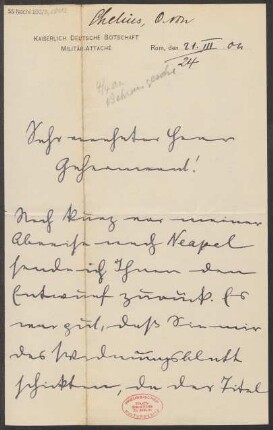 Chelius, O. von
KAISERLICH DEUTSCHE BOTSCHAFT
MILITÄR-ATTACHÉ
Rom, den 21. III 04
24
Sehr verehrter Herr
Geheimrat!
Noch kurz vor meiner
Abreise nach Neapel
sende ich Ihnen den
Entwurf zurück. Es
war gut, daß Sie mir
das Widmungsblatt
schickten, da der Titel